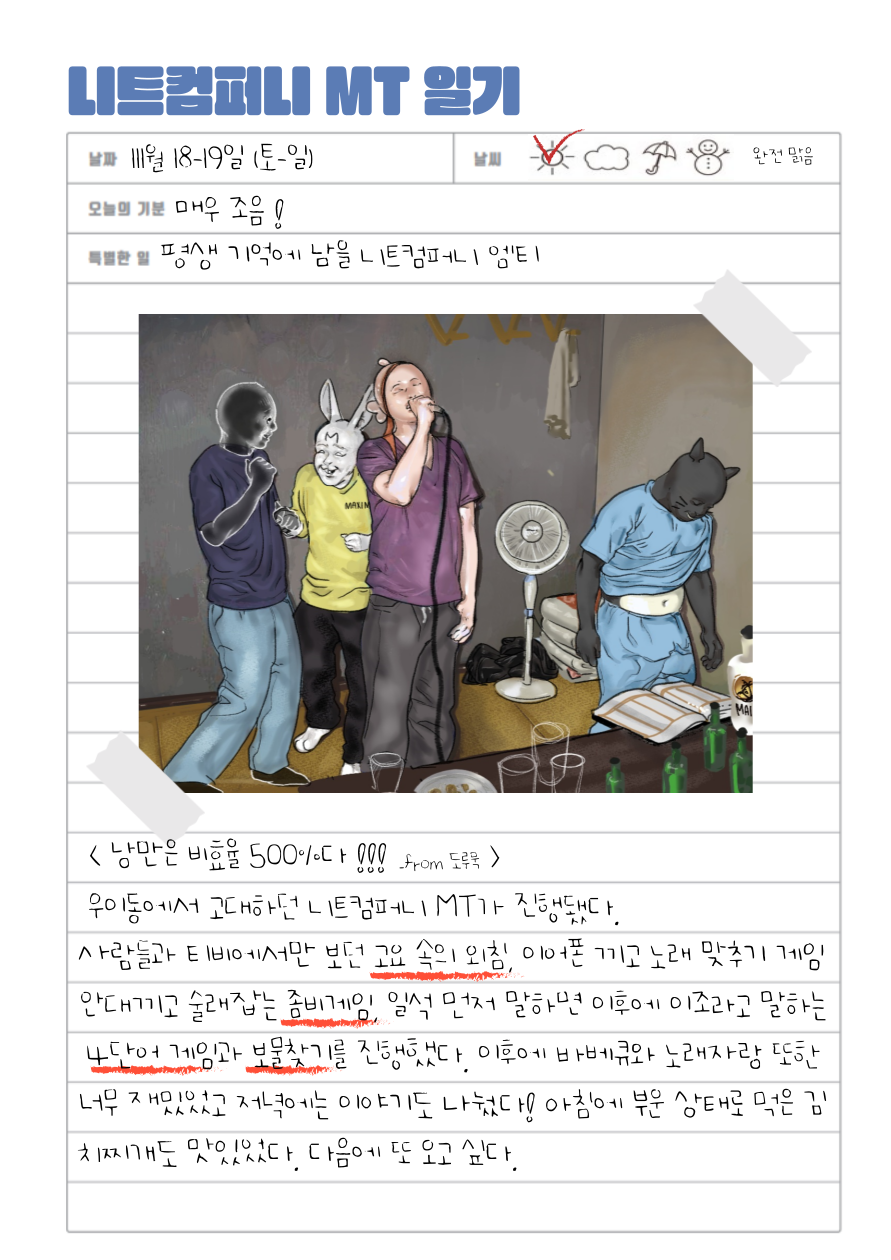 니트컴퍼니 MT 일기
날짜 111월 18-19일 (토-일) 날씨 완전 맑음
오늘의 기분 매우 조음!
특별한 일 평생 기억에 남을 니트컴퍼니 엠티
M
MAXIM
MAI
< 낭만은 비효율 500%다 !!! _from 도루묵 >
우이동에서 고대하던 니트컴퍼니 MT가 진행됐다.
사람들과 티비에서만 보던 고요 속의 외침, 이어폰 끼고 노래 맞추기 게임
안대끼고 술래잡는 좀비게임, 일석 먼저 말하면 이후에 이조라고 말하는
4단어 게임과 보물찾기를 진행했다. 이후에 바베큐와 노래자랑 또한
너무 재밌었고 저녁에는 이야기도 나눴다! 아침에 부운 상태로 먹은 김
치찌개도 맛있었다. 다음에 또 오고 싶다.